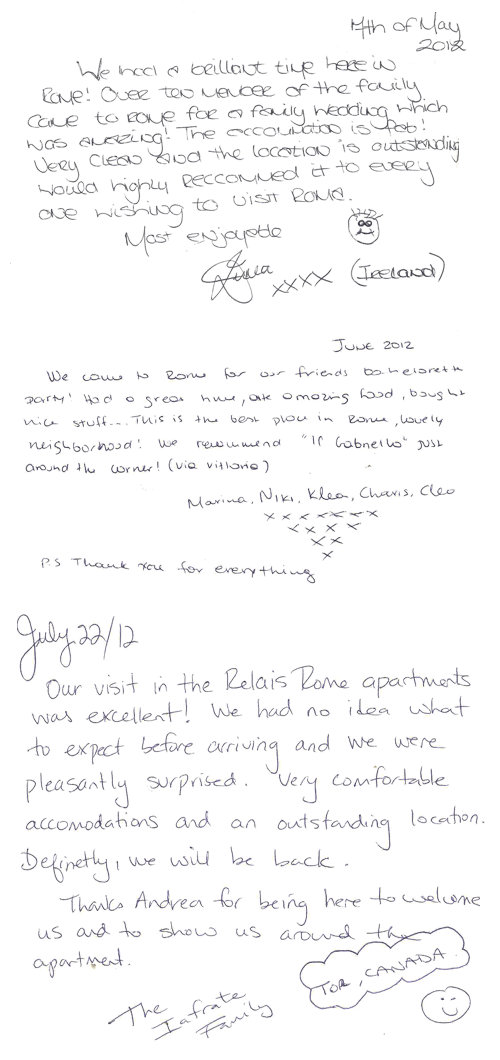 14th of May
2012
We had a brilliant time here in
Rome! Over ten member of the family
came to Rome for a family wedding which
was amazing! The accomodation is fab!
Very clean and the location is outstanding
Would highly reccommed it to every
one wishing to visit Roma.
Most enjoyable
xxxx (Ireland)
June 2012
We came to Rome for our friends bachelorette
party! Had a great time, ate amazing food, bought
nice stuff... This is the best place in Rome, lovely
neighborhood! We recommend "Il Gabriello" just
around the corner! (via vittoria)
Marina, Niki, Klea, Charis, Cleo
x x x x x x x
x x x x
x x
x
P.S Thank you for everything
July 22/12
Our visit in the Relais Rome apartments
was excellent! We had no idea what
to expect before arriving and we were
pleasantly surprised. Very comfortable
accomodations and an outstanding location.
Definetly, we will be back.
Thanks Andrea for being here to welcome
us and to show us around the
apartment.
TOR, CANADA.
The
Iafrate
Family